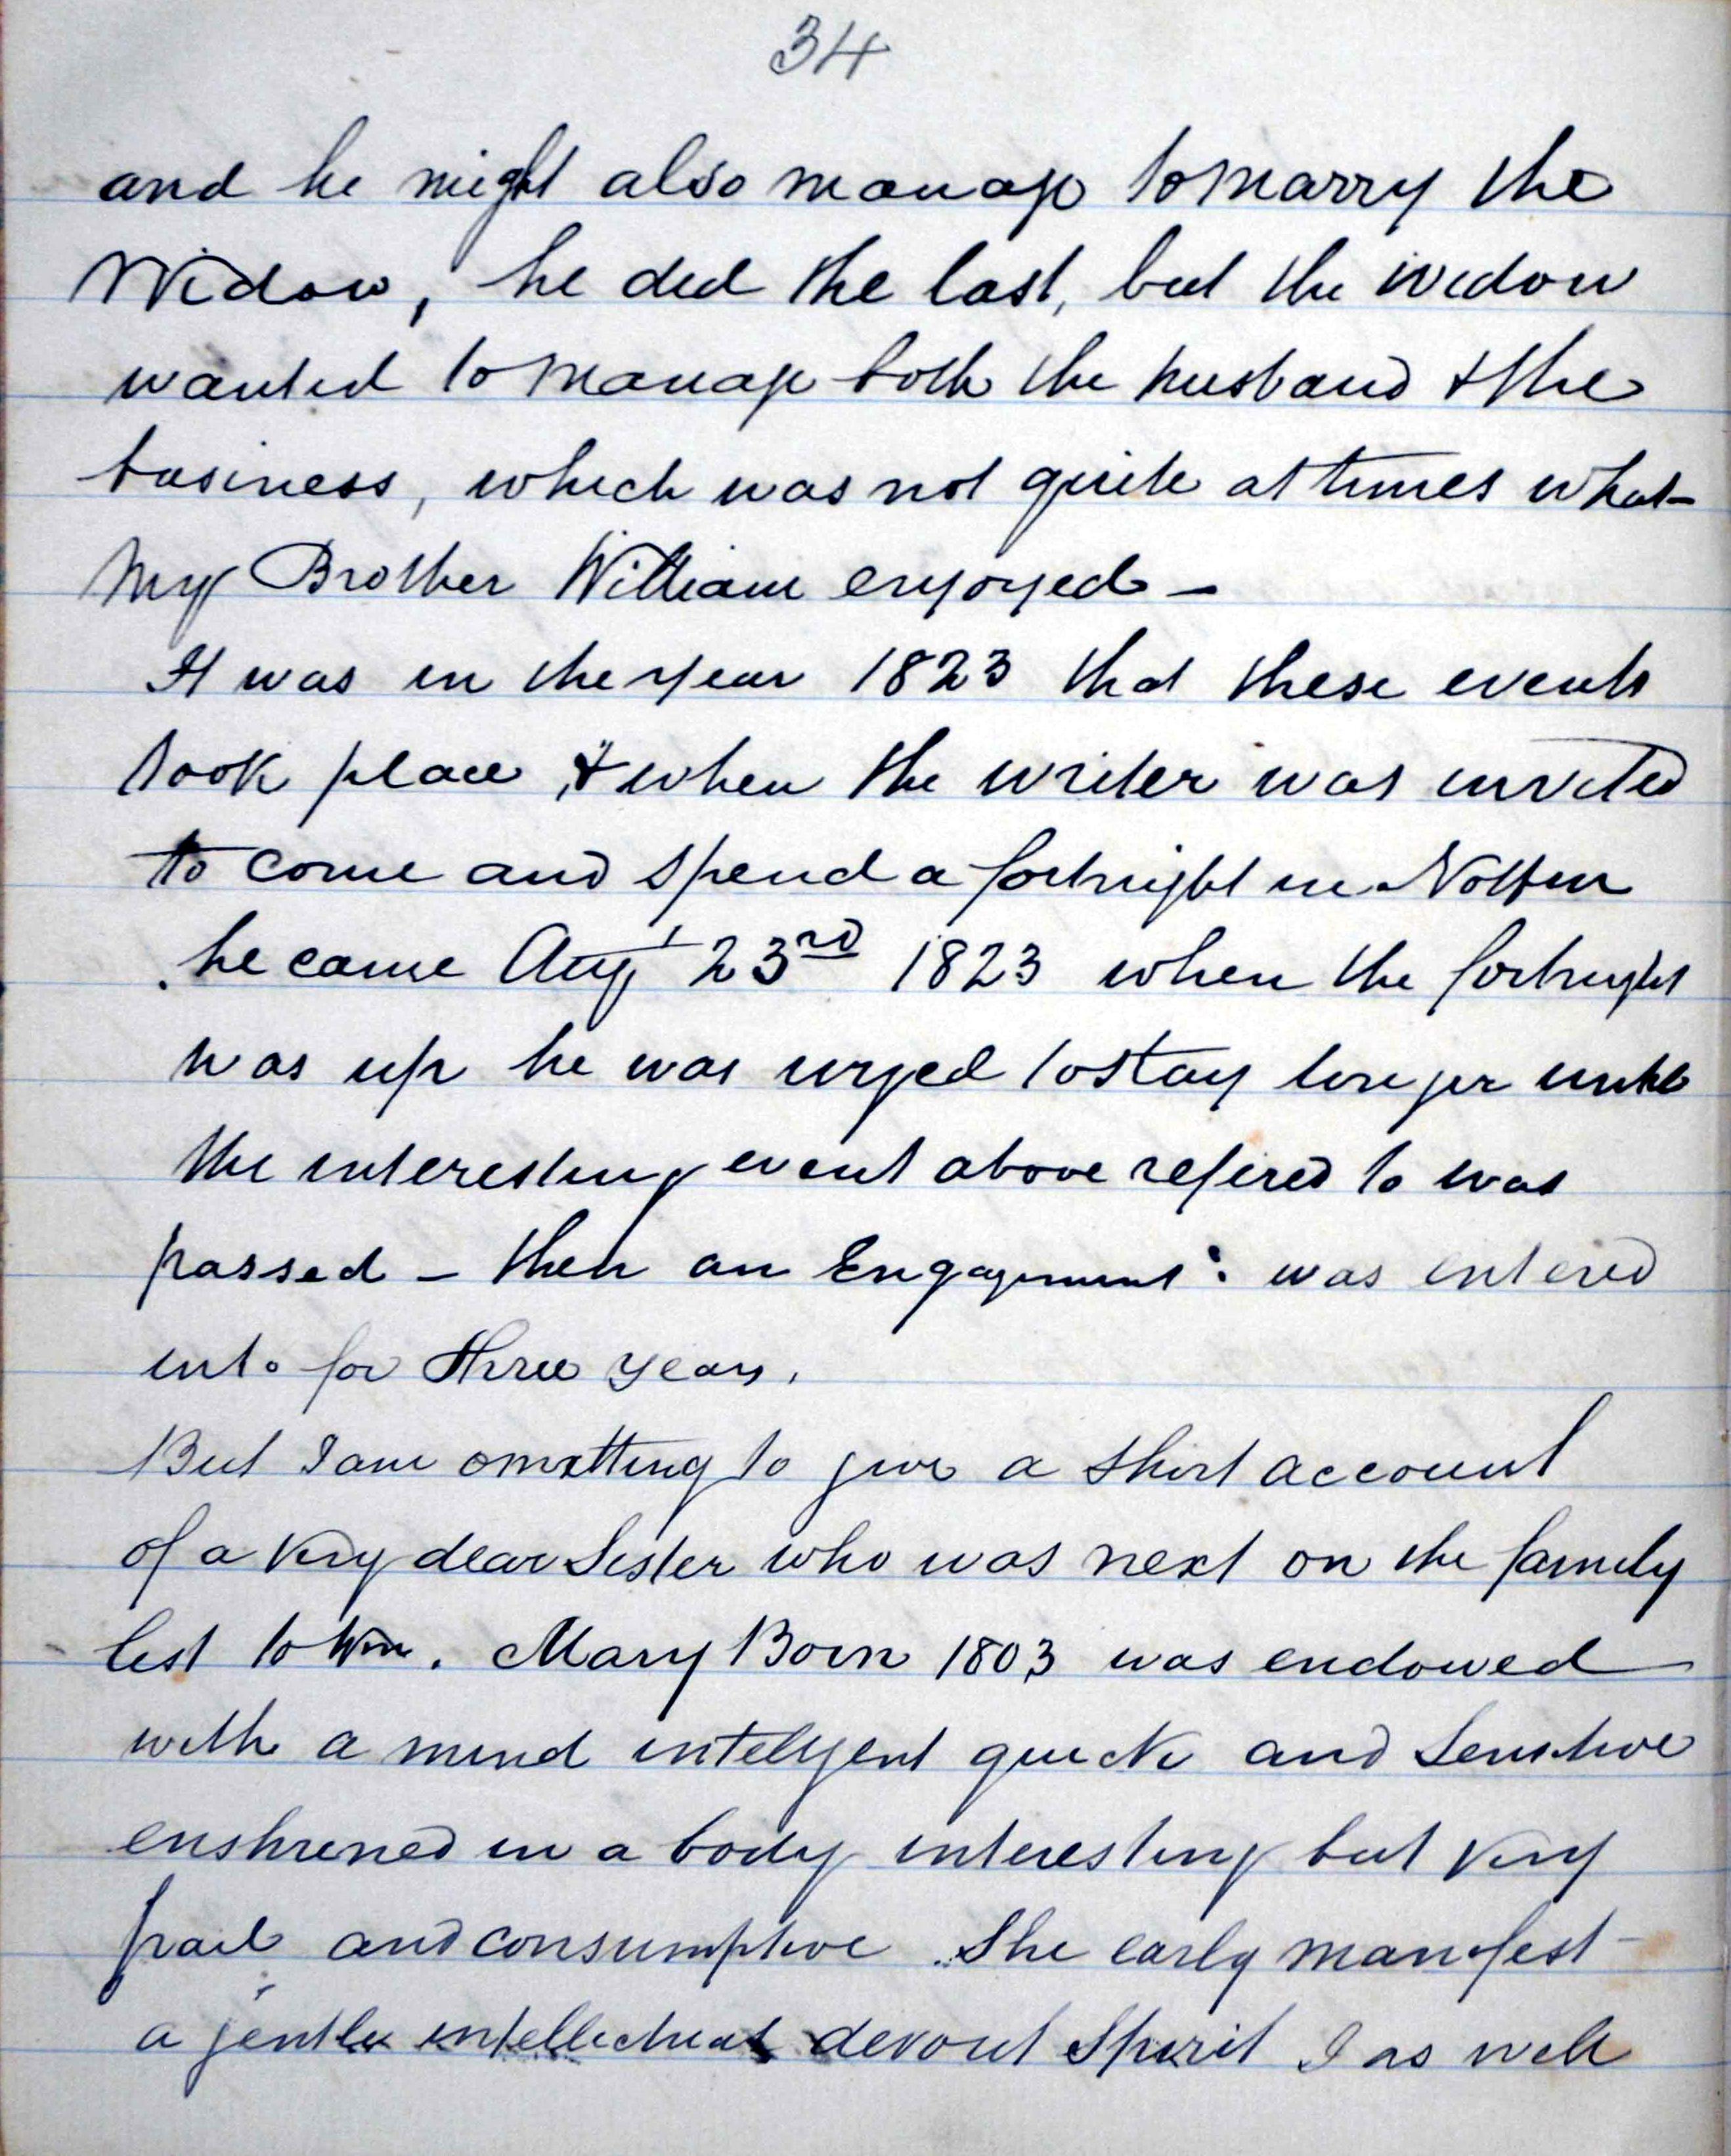 34
and he might also manage to marry the
Widow, he did the last, but the widow
wanted to manage both the husband & the
business, which was not quite at times what
My Brother William enjoyed -
It was in the year 1823 that these events
took place, & when the writer was invited
to come and spend a fortnight in
he came Augt 23rd 1823 when the fortnight
was up he was urged to stay longer until
the interesting event above refered to was
passed - then an Engagement: was entered
into for three years.
But I am omitting to give a short account
of a very dear Sister who was next on the family
list to Wm. Mary Born 1803 was endowed
with a mind inteligent quick and Sensitive
enshrined in a body interesting but very
frail and consumptive She early manifest
a gentle intellectual devout Spirit I as well